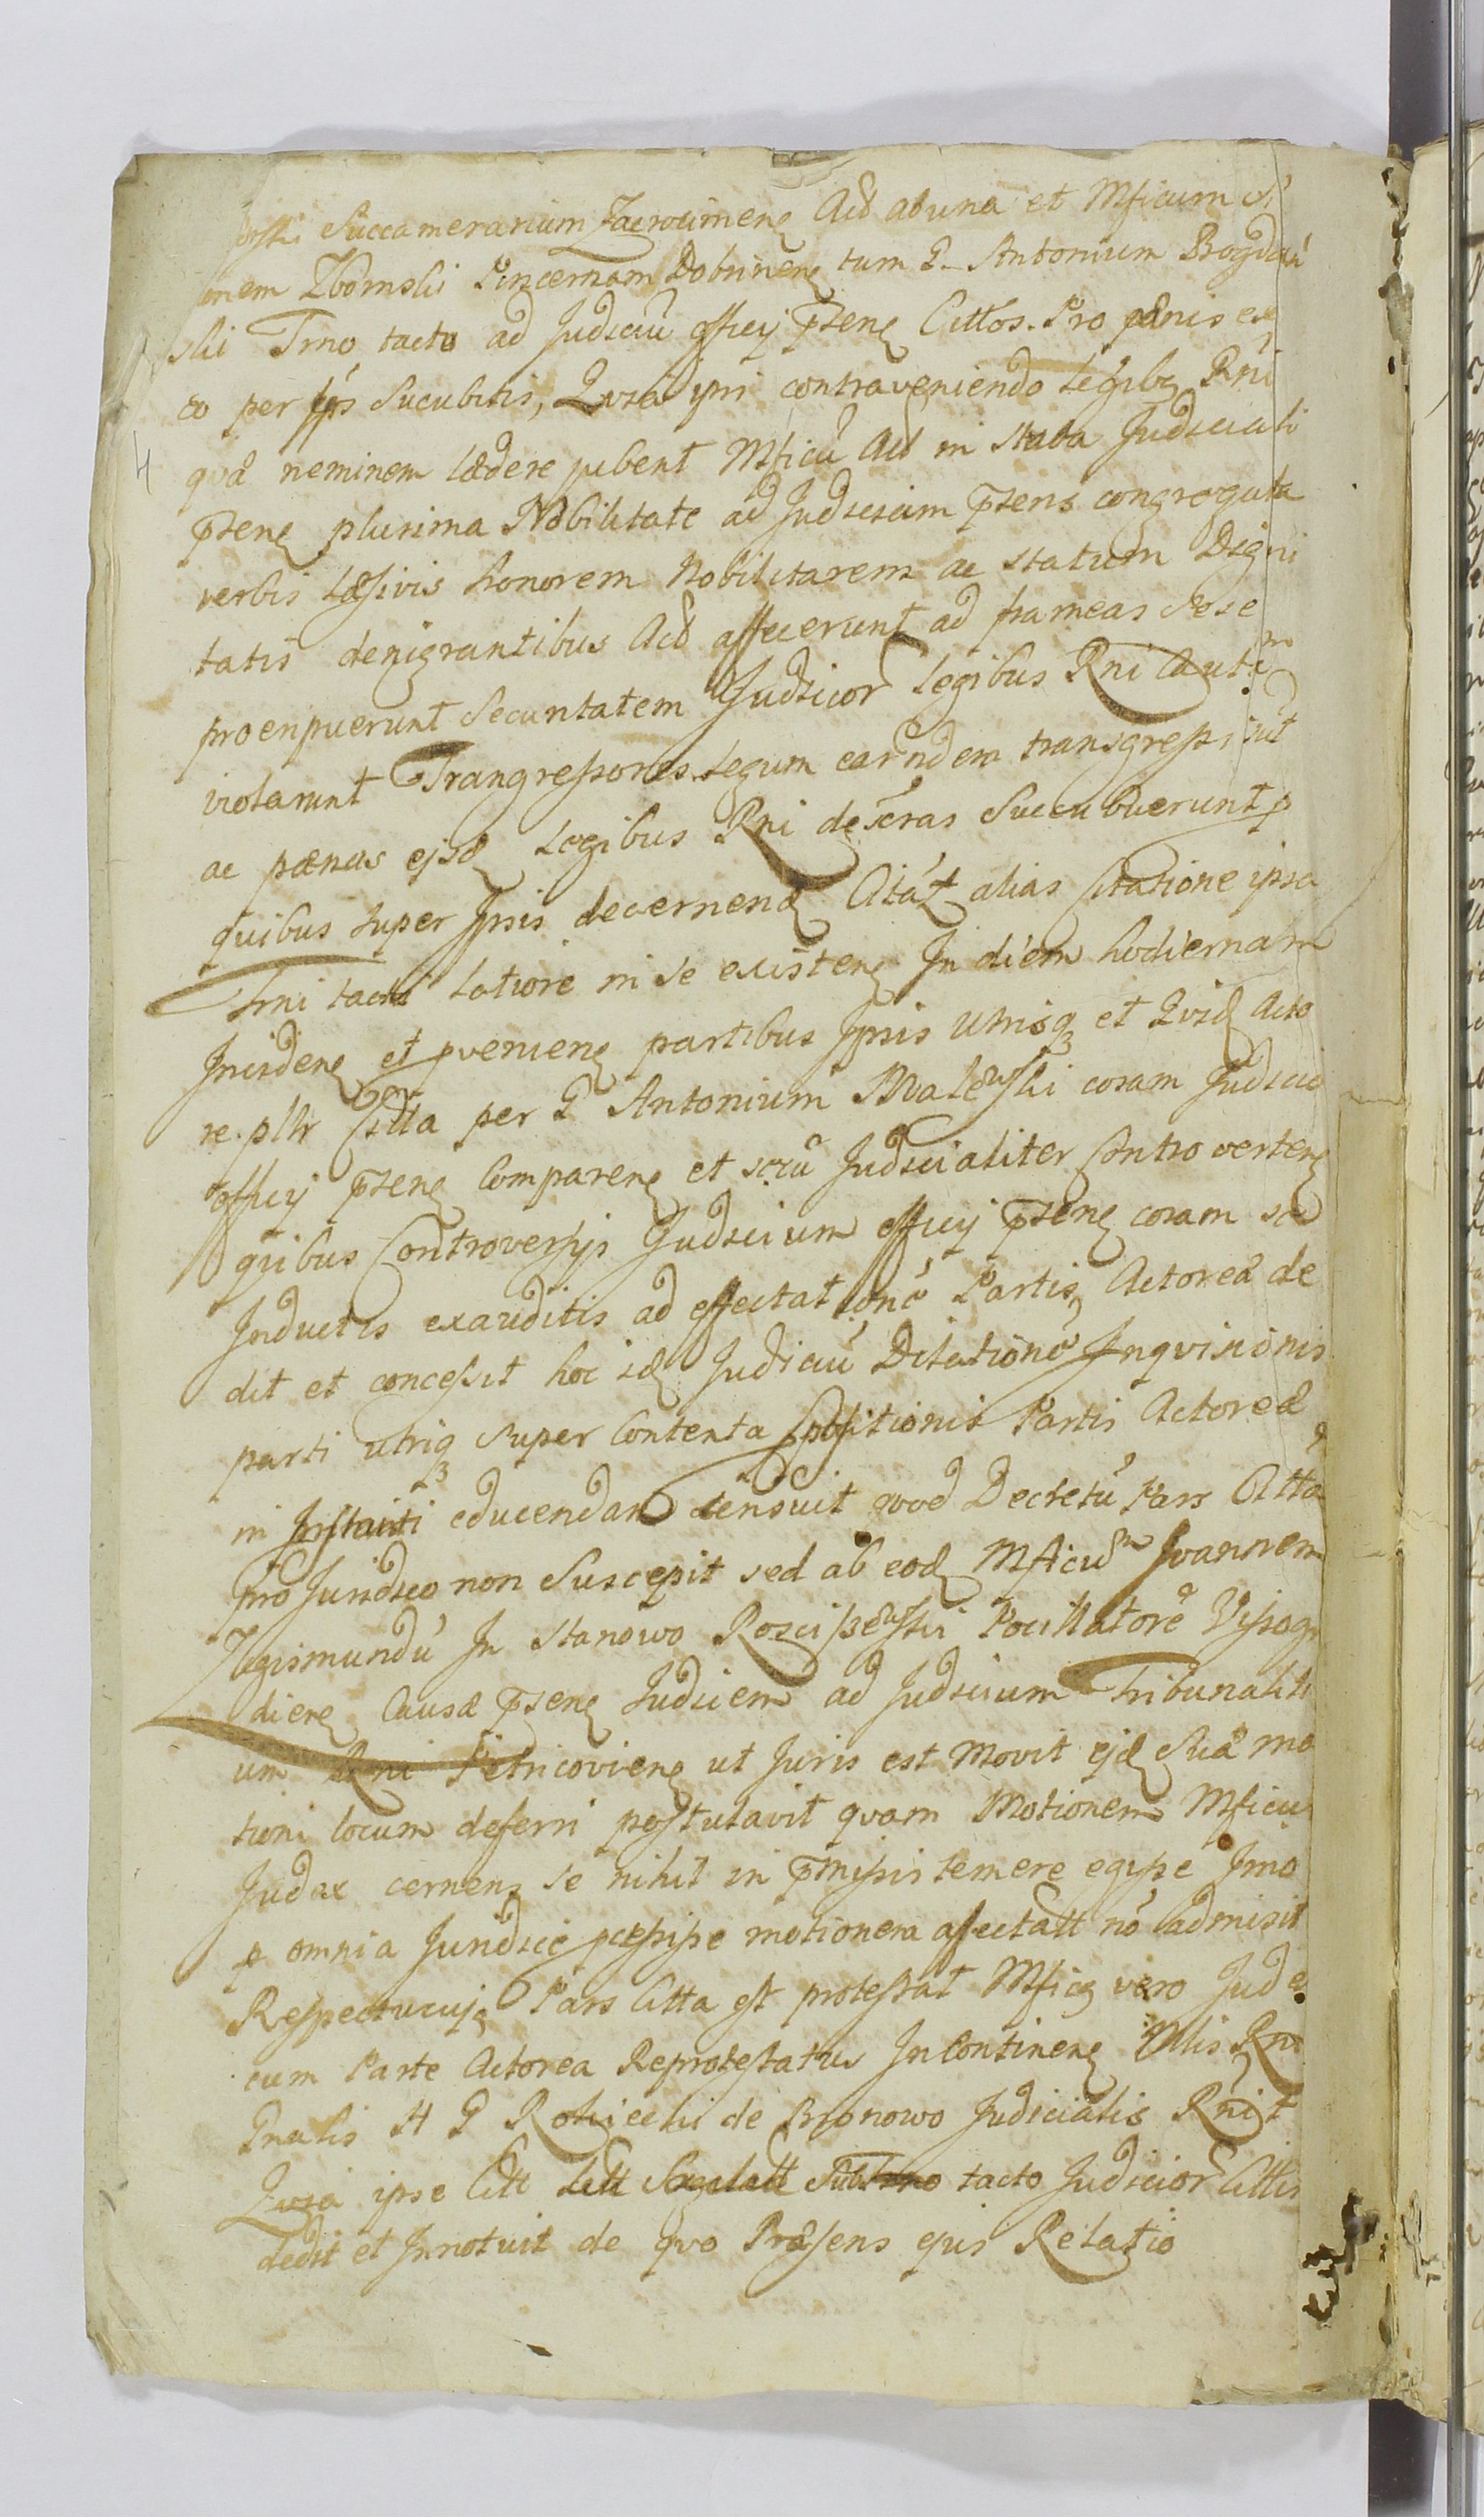 Succamerarium Zacrocimens Act ab una et Mficum
nem Zbornski Pincernam Dobrinens tum G. Antonium Bogda
ski Trno tacto ad Judiciū officij pñtens Cittos. Pro pænis ex
eo per ipōs Sucubitis, Quia ipsi contraveniendo Legibq Rñi
quæ neminem lædere jubent Mficū Act in Stuba Judiciali
pñtens plurima Nobilitate ad Judicium pñtens congregata
verbis læsivis honorem Nobilitarem ac statum Digni
tatis denigrantibus Act affecerunt ad frameas sese
proeripuerunt Securitatem Judicior Legibus Rni Cautam
violarunt Trangressores Legum earūdem transgressi sūt
ac pænas ejsd Legibus Rni descras Succubuerunt p
quibus super Ipsis decernend Citat alias Citatione ipsa
Trni tacti latiore in se existens In diem hodiernam
Incidens et pveniens partibus Ipsis Utrisq et Quid Acto
re plr Citta per G Antonium Walewski coram Judicio
officij pñtens Comparens et secū Judicialiter Controvertens
quibus Controversijs Judicium officij pñtens coram se
Inductis exauditis ad affectationē Partis Actoreæ de
dit et concessit hoc id Judiciū Dilationē Inquisitionis
parti utriq super Contenta Propositionis Partis Actoreæ
in Instanti educendam censuit quod Decretū Pars Citta
pro Juridico non Suscepit sed ab eod Mficum Joannem
Zigismundū In Stanowo Rosciszewski Pocillatorē Vissogr
diens Causæ pñtens Judicem ad Judicium Tribunaliti
um Rni Petricoviens ut Juris est Movit ejd Suæ mo
tioni locum deferri postulavit quam Motionem Mficu
Judex cernens se nihil in pmissis temere egisse Imo
p omnia Juridice pcessisse motionem affectatt nō admisit
Respectu cujq Pars Citta est protestat Mficq vero Jude
cum Parte Actorea Reprotestatus In Continens Mlis Rni
Gnalis H G Rokicki de Bronowo Judicialis Rñit
Quia ipse Citt Litt Sigilatt Sub Trno tacto Judicior Cittis
dedit et Innotuit de quo Præsens ejus Relatio